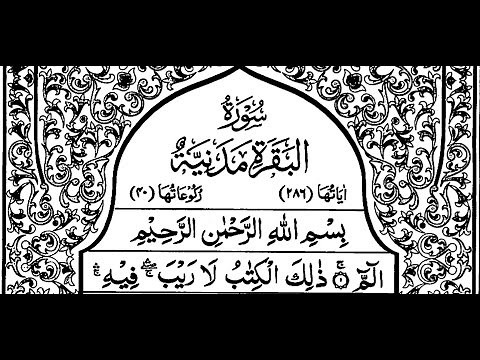 سُوْرَةُ
الْبَقَرَةِ مَدَنِيَّةٌ
اٰيَاتُهَا (٢٨٦) رُكُوْعَاتُهَا (٤٠)
بِسْمِ اللّٰهِ الرَّحْمٰنِ الرَّحِيْمِ
الٓمّٓ ۚ﴿١﴾ ذٰلِكَ الْكِتٰبُ لَا رَيْبَ ۛۖ فِيْهِ ۛ